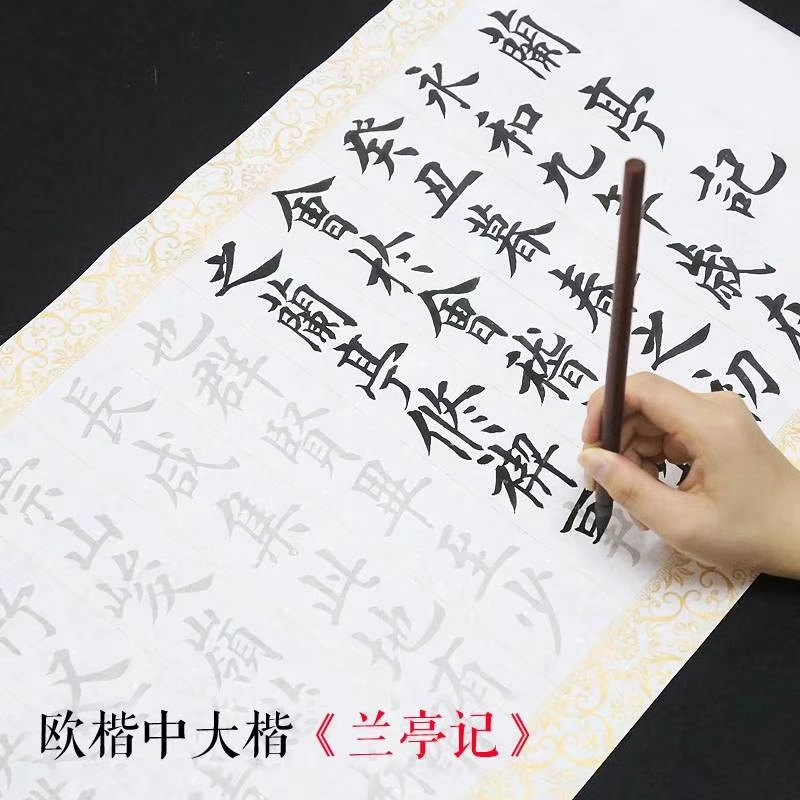 蘭亭記
永和九年歲在
癸丑暮春之初
會於會稽
之蘭亭修禊
也群賢畢至少
長咸集此地有
崇山峻嶺
竹又
欧楷中大楷《兰亭记》